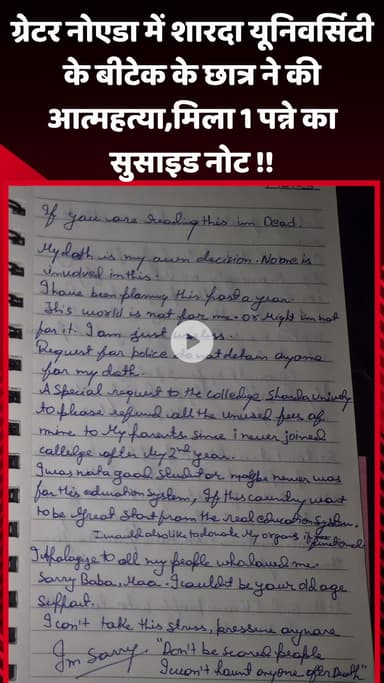 ग्रेटर नोएडा में शारदा यूनिवर्सिटी
के बीटेक के छात्र ने की
आत्महत्या,मिला 1 पन्ने का
सुसाइड नोट !!
If you are reading this im Dead.
My dath is my own decision. No one is
invovled in this.
I have been planing this past a year.
This world is not for me. or Might im not
for it. I am just
Request for police not detain anyone
for my dath.
A Special request to the colledge Sharda
to please refund all the unused fees of
mine to My parents since i never joined
colledge after My 2nd year.
I was not a good or maybe never was
for this education System, If this country want
to be Great Start from the real education System.
I would also like to donate My organs if functional
I Apologise to all my people who loved me.
Sorry Baba, Maa. I couldn't be your old age
support.
I can't take this stress, pressure anymore
I'm Sorry. "Don't be scared people
I won't haunt anyone after Death"